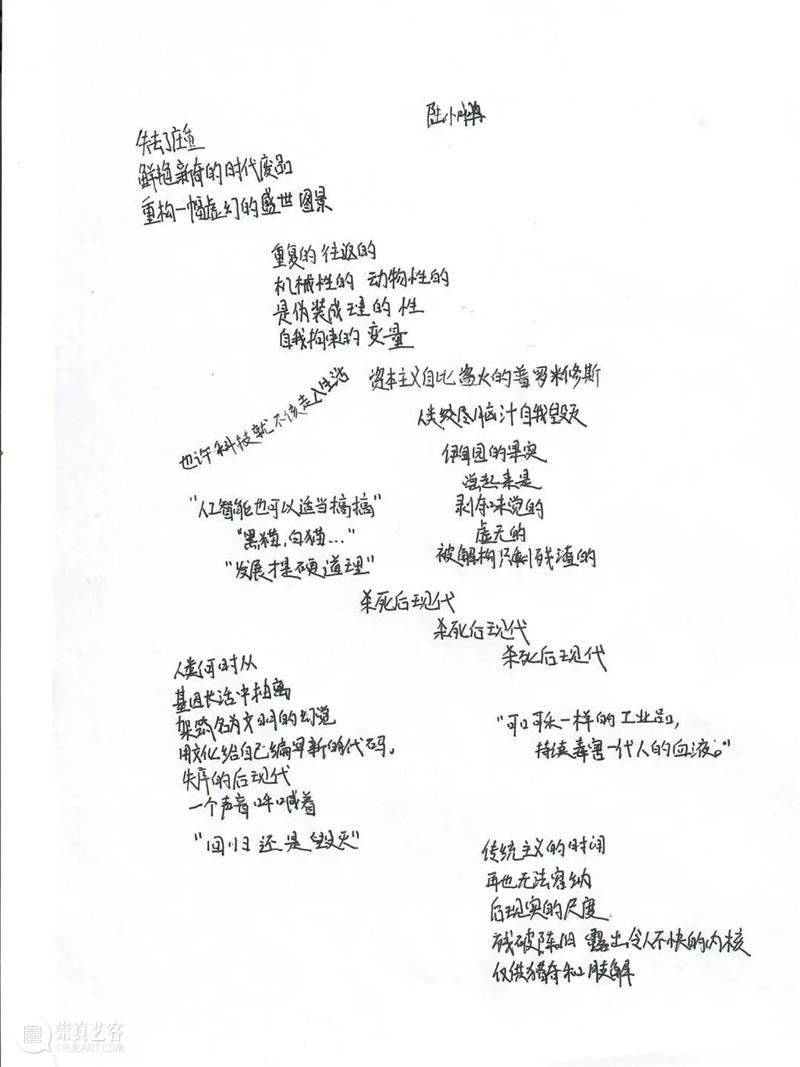 陆小
失去了庄
鲜艳新奇的时代废品
重构一幅虚幻的盛世图景
重复的 往返的
机械性的 动物性的
是伪装成理的 性
自我拘束的 变量
资本主义自比盗火的普罗米修斯
也许科技就不该走入生活
人类绞尽脑汁自我毁灭
伊甸园的果实
尝起来是
剥夺味觉的
虚无的
被解构只剩残渣的
"人工智能也可以适当搞搞"
"黑猫,白猫..."
"发展才是硬道理"
杀死后现代
杀死后现代
杀死后现代
人类何时从
基因长河中抽离
架筑名为文明的幻觉
用文化给自己编写新的代码。
失序的后现代
一个声音呼喊着
"回归 还是 毁灭"
"可口可乐一样的工业品,
持续毒害一代人的血液。"
传统主义的时间
再也无法容纳
后现实的尺度
残破陈旧 露出令人不快的内核
仅供猎奇和肢解
崇真艺客
TRUEART.COM